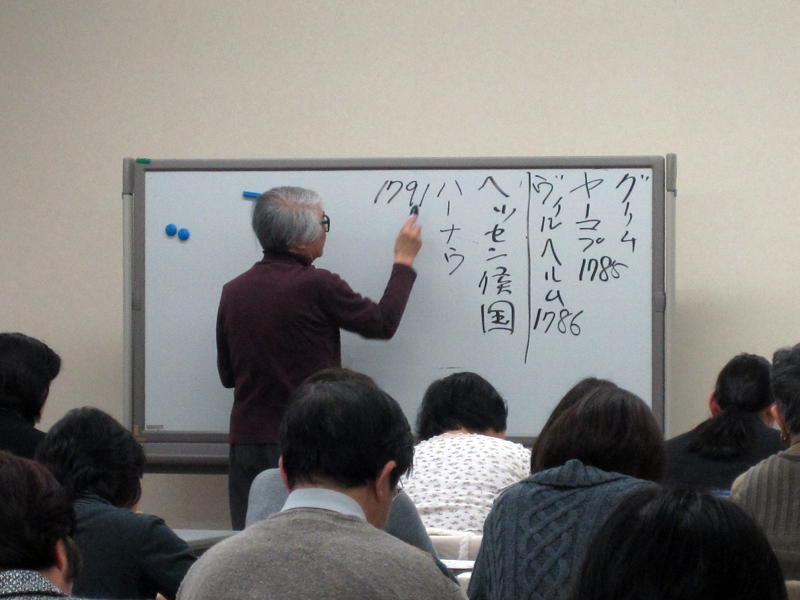 グリム
ヤーコプ 1785
ヴィルヘルム 1786
ヘッセン侯国
ハーナウ
1791